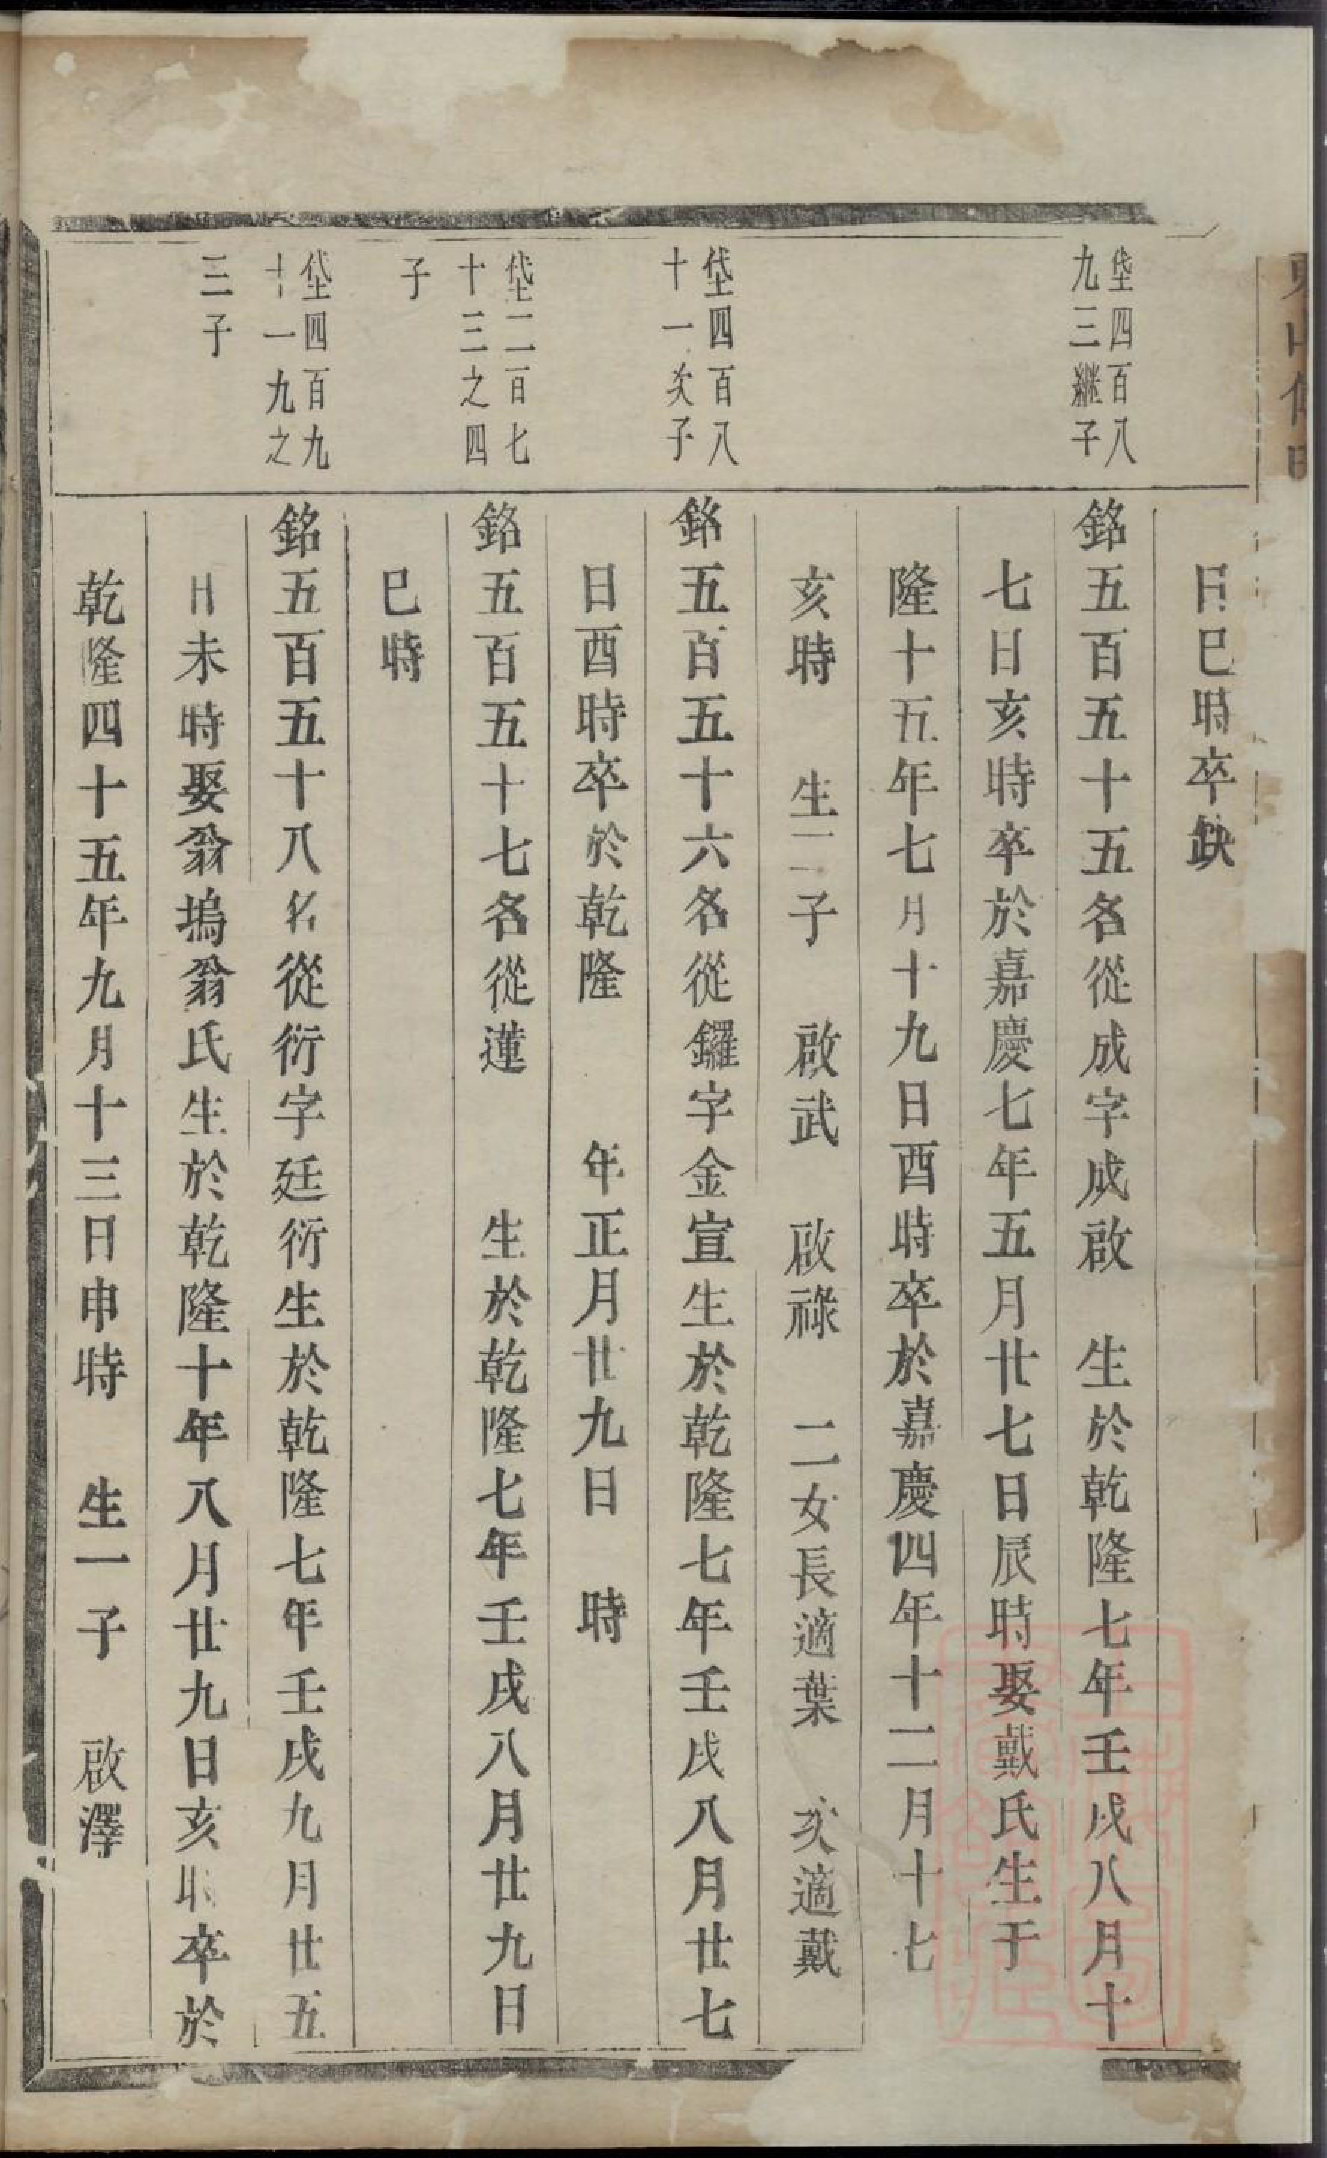 日巳時卒缺
垈四百八
九三繼子
銘五百五十五名從成字成啟　生於乾隆七年壬戌八月十
七日亥時卒於嘉慶七年五月廿七日辰時娶戴氏生于
隆十五年七月十九日酉時卒於嘉慶四年十二月十七
亥時　生二子　啟武　啟祿　二女長適葉　次適戴
垈四百八
十一次子
銘五百五十六名從鑼字金宣生於乾隆七年壬戌八月廿七
日酉時卒於乾隆　　年正月廿九日　時
垈二百七
十三之四
子
銘五百五十七名從蓮　　生於乾隆七年壬戌八月廿九日
巳時
垈四百九
十一九之
三子
銘五百五十八名從衍字廷衍生於乾隆七年壬戌九月廿五
日未時娶翁塢翁氏生於乾隆十年八月廿九日亥時卒於
乾隆四十五年九月十三日申時　生一子　啟澤